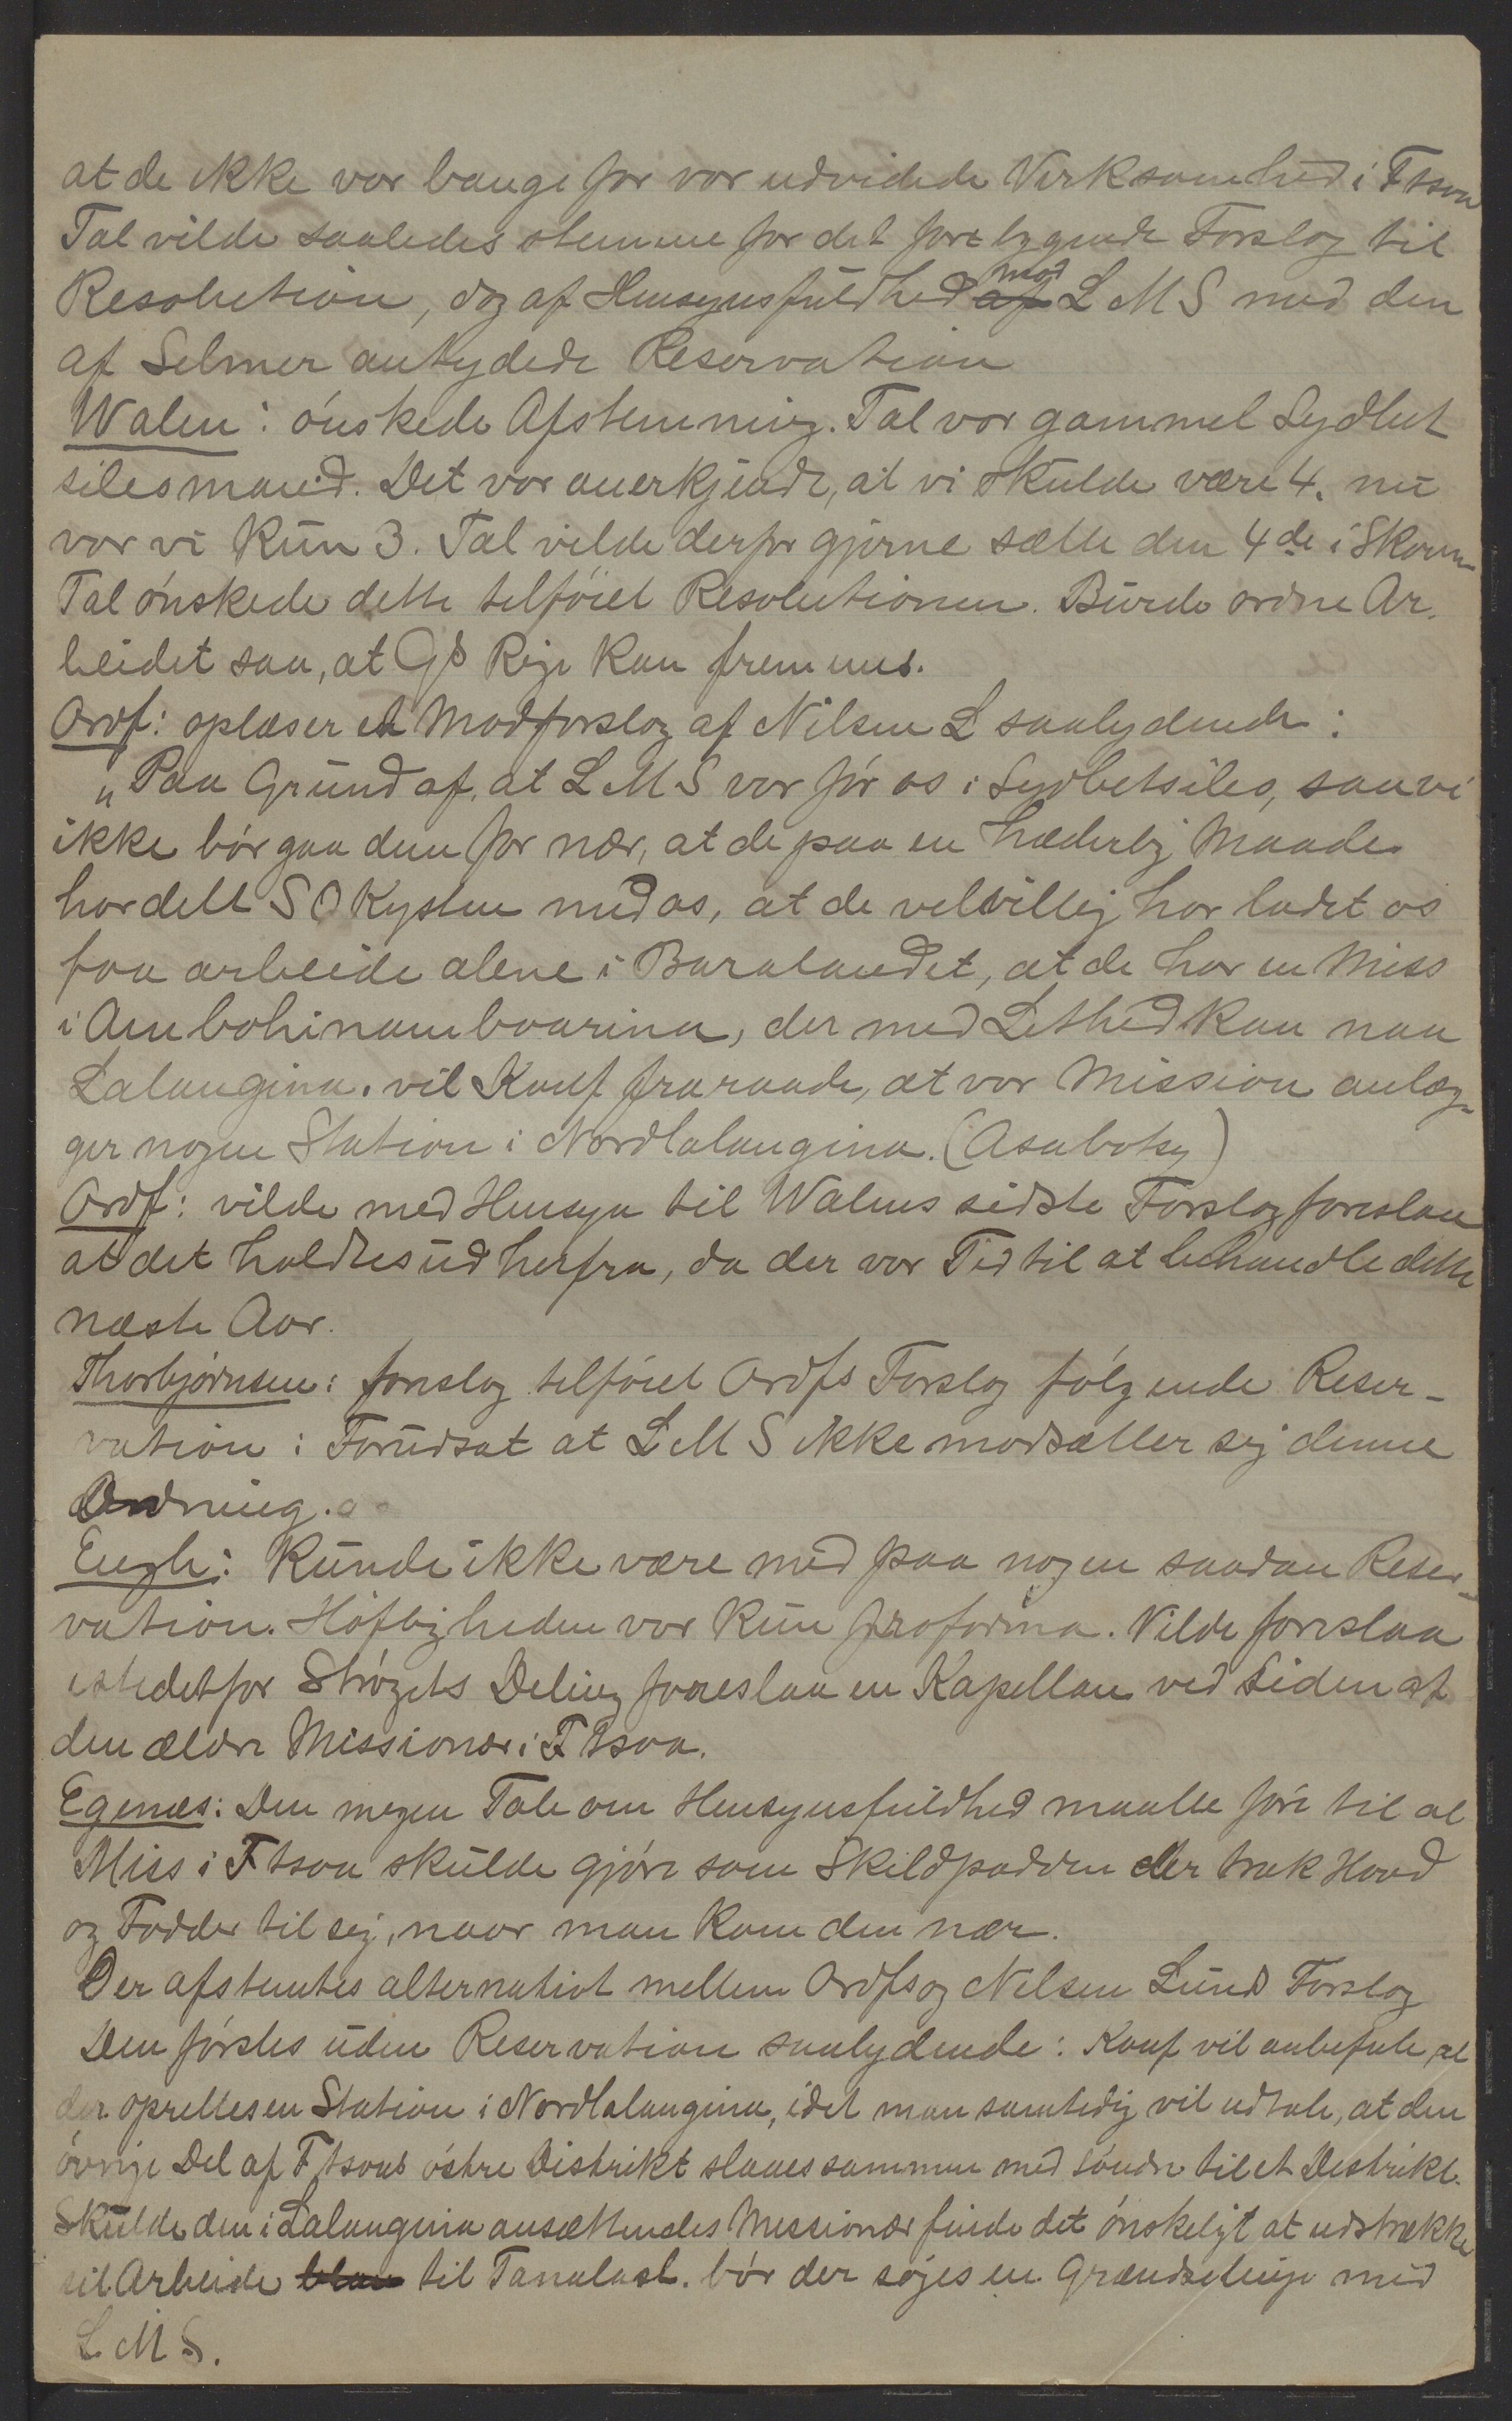 at de ikke var bange for vor udvidede Virksomhed i Ftsoa
Tal vilde saaledes stemme for det foreliggende Forslag til
Resolution, dog af Hensynsfuldhed af mod LMS med den
af Selmer antydede Reservation
Walen: ønskede Afstemning. Tal var gammel Sydbet
silesmand. Det var anerkjendt, at vi skulde være 4, nu
var vi kun 3. Tal vilde derfor gjerne sætte den 4de i
Tal ønskede dette tilføiet Resolutionen. Burde ordne Ar.
beidet saa, at Gs Rige kan fremmes.
Ordf: oplæser et Modforslag af Nilsen L saalydende:
„Paa Grund af, at LMS var før os i Sydbetsileo, saa vi
ikke bør gaa dem for nær, at de paa en hæderlig Maade
har delt SO Kysten med os, at de velvillig har ladet os
faa arbeide alene i Baralandet, at de har en Miss
i Ambohinamboarina, der med Lethed kan naa
Lalangina. vil Konf fraraade, at vor Mission anlæg-
ger nogen Station i Nordlalangina. (Asabotsy)
Ordf: vilde med Hensyn til Walens sidste Forslag foreslaa
at det holdtes ud herfra, da der var Tid til at behandle dette
næste Aar.
Thorbjørnsen: foreslog tilføiet Ordfs Forslag følgende Reser-
vation: Forudsat at LMS ikke modsætter sig denne
Ordning.
Engh: Kunde ikke være med paa nogen saadan Reser-
vation. Høfligheden var kun proforma. Vilde foreslaa
istedetfor Strøgets Deling foreslaa en Kapellan ved Siden af
den ældre Missionær i Ftsoa.
Egenæs: Den megen Tale om Hensynsfuldhed maatte føre til at
Miss i Ftsoa skulde gjøre som Skildpadden der trak Hoved
og Fødder til sig, naar man kom den nær.
Der afstemtes alternativt mellem Ordfs og Nilsen Lund Forslag
Den førstes uden Reservation saalydende: Konf vil anbefale, at
der oprettes en Station i Nordlalangina, idet man samtidig vil udtale, at den
øvrige Del af Ftsoas østre Distrikt slaaes sammen med søndre til et Distrikt.
Skulde den i Lalangina ansættendes Missionær finde det ønskeligt at udstrække
sit Arbeide blan til Tanalasl. bør der søges en Grændselinje med
L.M.S.